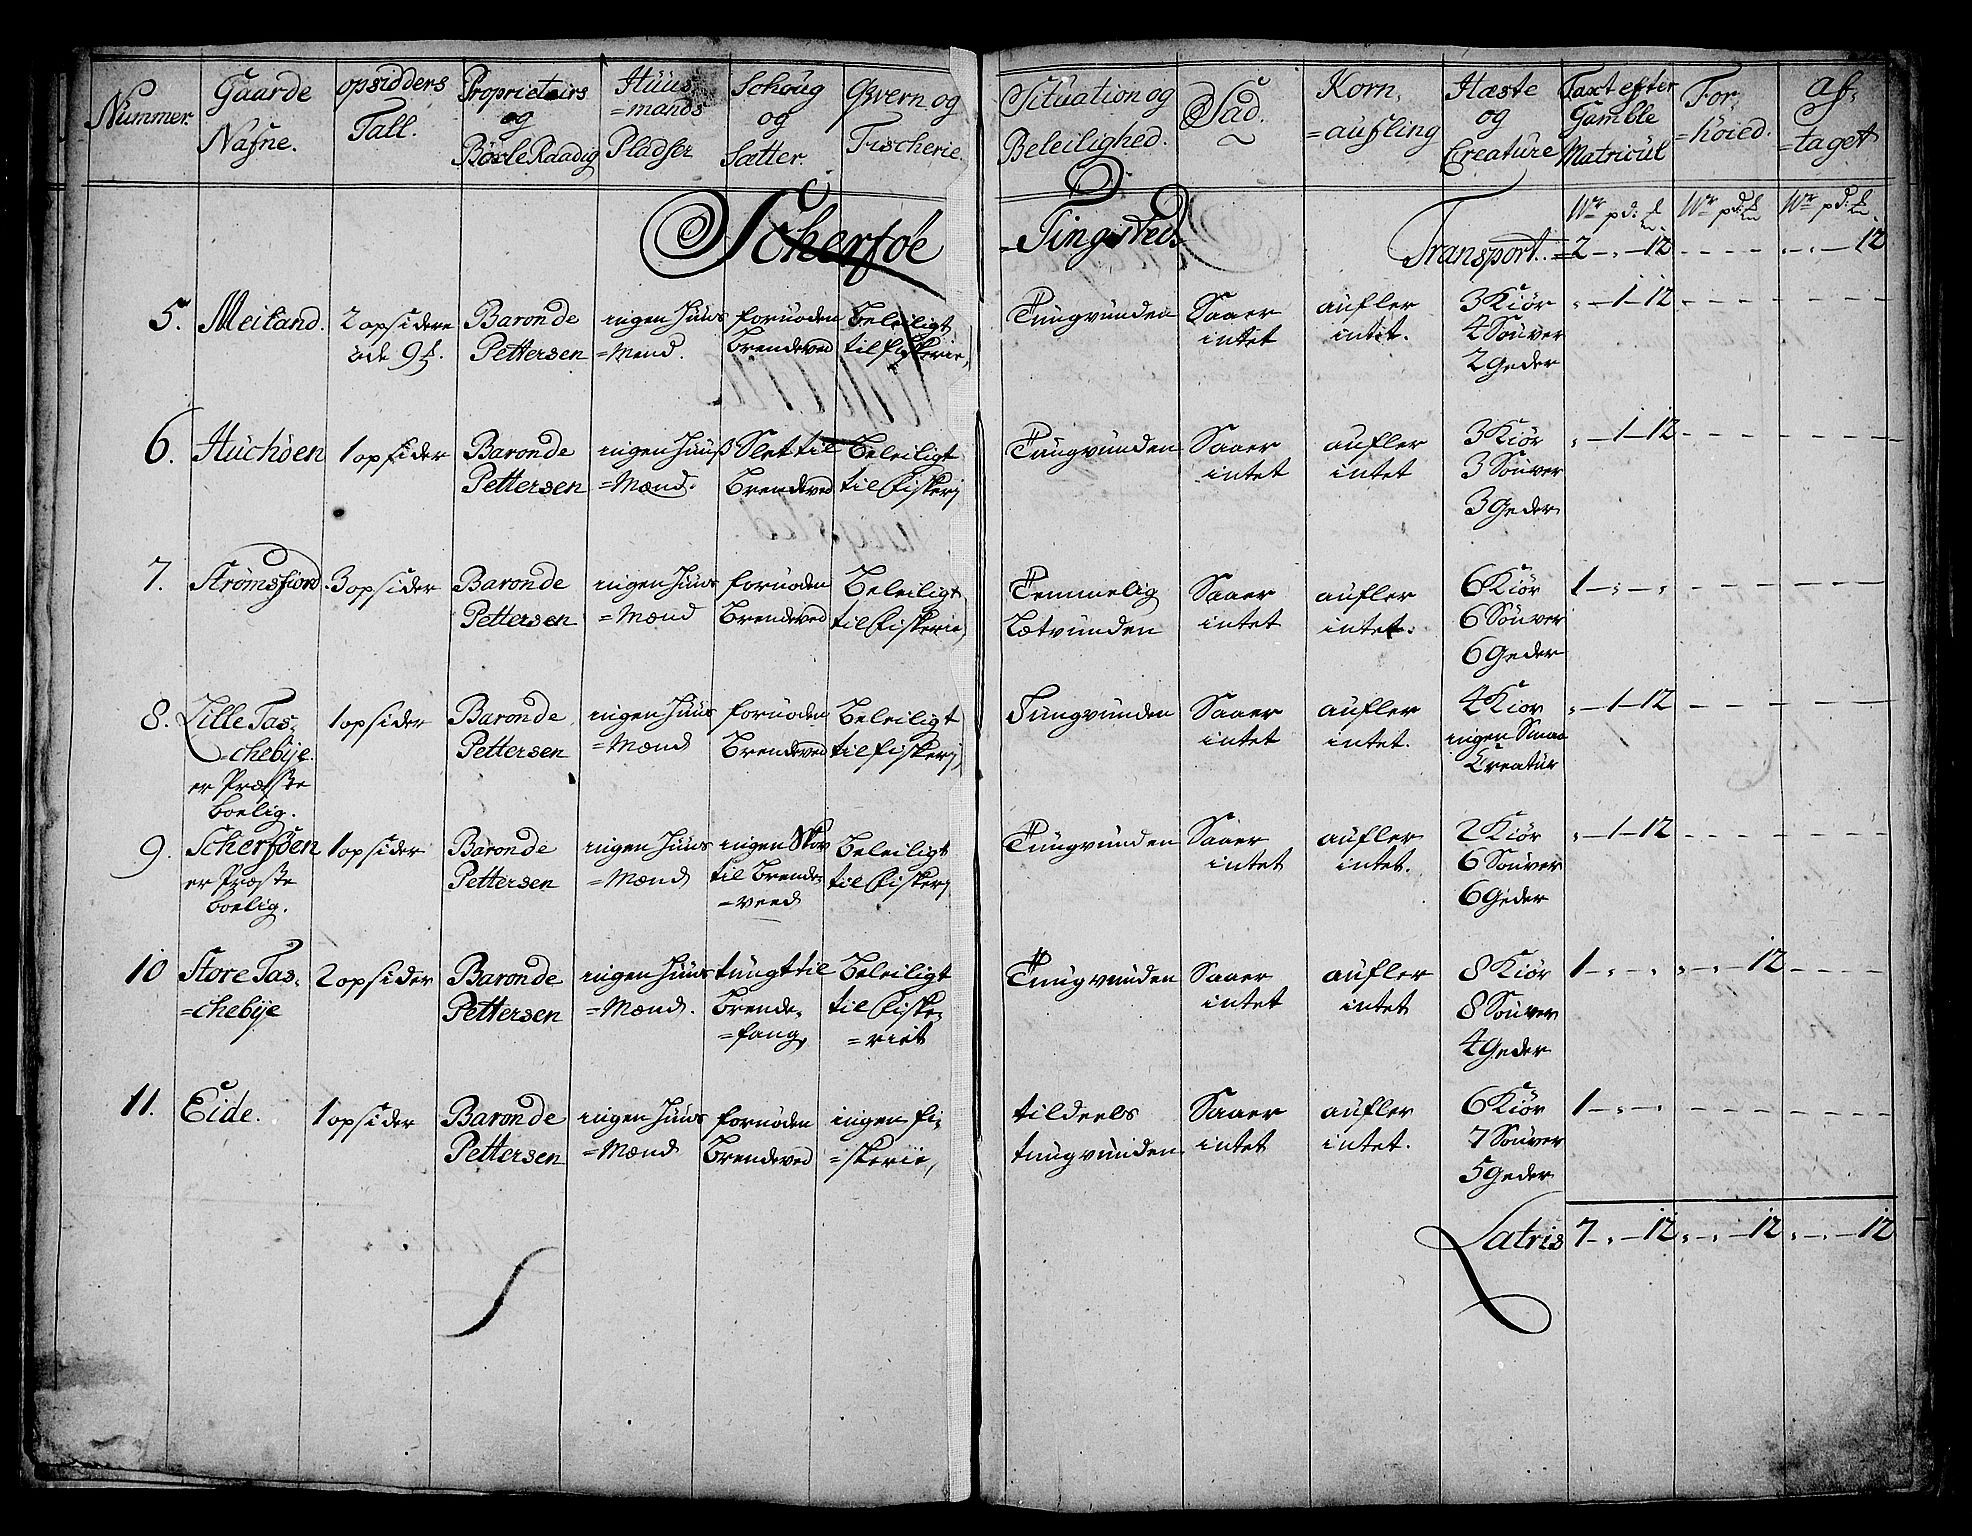 Nummer.
Gaarde Nafne.
opsidders Tall.
Proprietairs og Böxle Raadig
Huus =mands Pladser
Schoug og Sætter
Qvern og Fischerie
Situation og Beleilighed.
Sad.
Korn, =aufling
Hæste og Creature
Taxt efter Gamble Matricul
For, =höied.
Af, =taget
Scherföe
Tingsted
Wr pd: Wr pd: Wr pd:
Transport. = 2 - 12 - 12
5. Meiland. 2 opsidere öde 9 Baron de Pettersen ingen Huus =Mend. fornöden Brendeved Beleiligt til fiskerie,
Tungvunden Saaer intet aufler intet. 3 Kiör 4 Souver 2 Geder - 1 - 12
6. Huchöen 1 opsider Baron de Pettersen ingen Huus =Mænd. Slet til Brendeved Beleiligt til Fiskerj
Tungvunden Saaer intet aufler intet 3 Kiör 3 Souver 3 Geder - 1 - 12
7. Strömsfiord. 3 opsider Baron de Pettersen ingen Huus =Mænd fornöden Brendeved Beleiligt til Fiskerie,
Temmelig Letvunden Saaer intet aufler intet. 6 Kiör 6 Souver 6 Geder 1 -
8. Lille Tas= =chebye. er Præste boelig. 1 opsider Baron de Pettersen ingen Huus =Mænd fornöden Brendeved Beleiligt til fiskerj,
Tungvunden Saaer intet aufler intet. 4 Kiör ingen Smaa Creatur - 1 - 12
9. Scherföen er Præste boelig. 1 opsider Baron de Pettersen ingen Huus =Mænd ingen Skov til Brende= =veed Beleiligt til Fiskerj
Tungvunden Saaer intet aufler intet. 2 Kiör 6 Souver 6 Geder - 1 - 12
10 Store Tas= =chebye 2 opsider Baron de Pettersen ingen Huus =Mænd. tungt til Brende= =fang, Beleiligt til Fiske= =riet
Tungvunden Saaer intet aufler intet 8 Kiör 8 Souver 4 Geder 1 - - 12
11. Eide. 1 opsider Baron de Pettersen ingen Huus =Mænd fornöden Brendeved ingen fi= =skerie,
tildeels tungvunden Saaer intet aufler intet. 6 Kiör 7 Souver 5 Geder 1 -
Latris 7 - 12 - 12 - 12